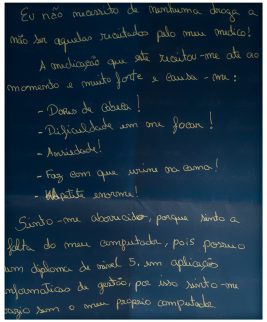 Eu não necessito de nenhuma droga a
não ser aquelas receitadas pelo meu medico!
A medicação que este receitou-me até ao
momento e muito forte e causa-me:
- Dores de cabeca!
- Dificuldade em me focar!
- Ansiedade!
- Faz com que urine na cama!
- Apetite enorme!
Sinto-me aborrecido, porque sinto a
falta do meu computador, pois possuo
um diploma de nivel 5, em aplicações
informaticas de gestão, por isso sinto-me
vazio sem o meu proprio computador